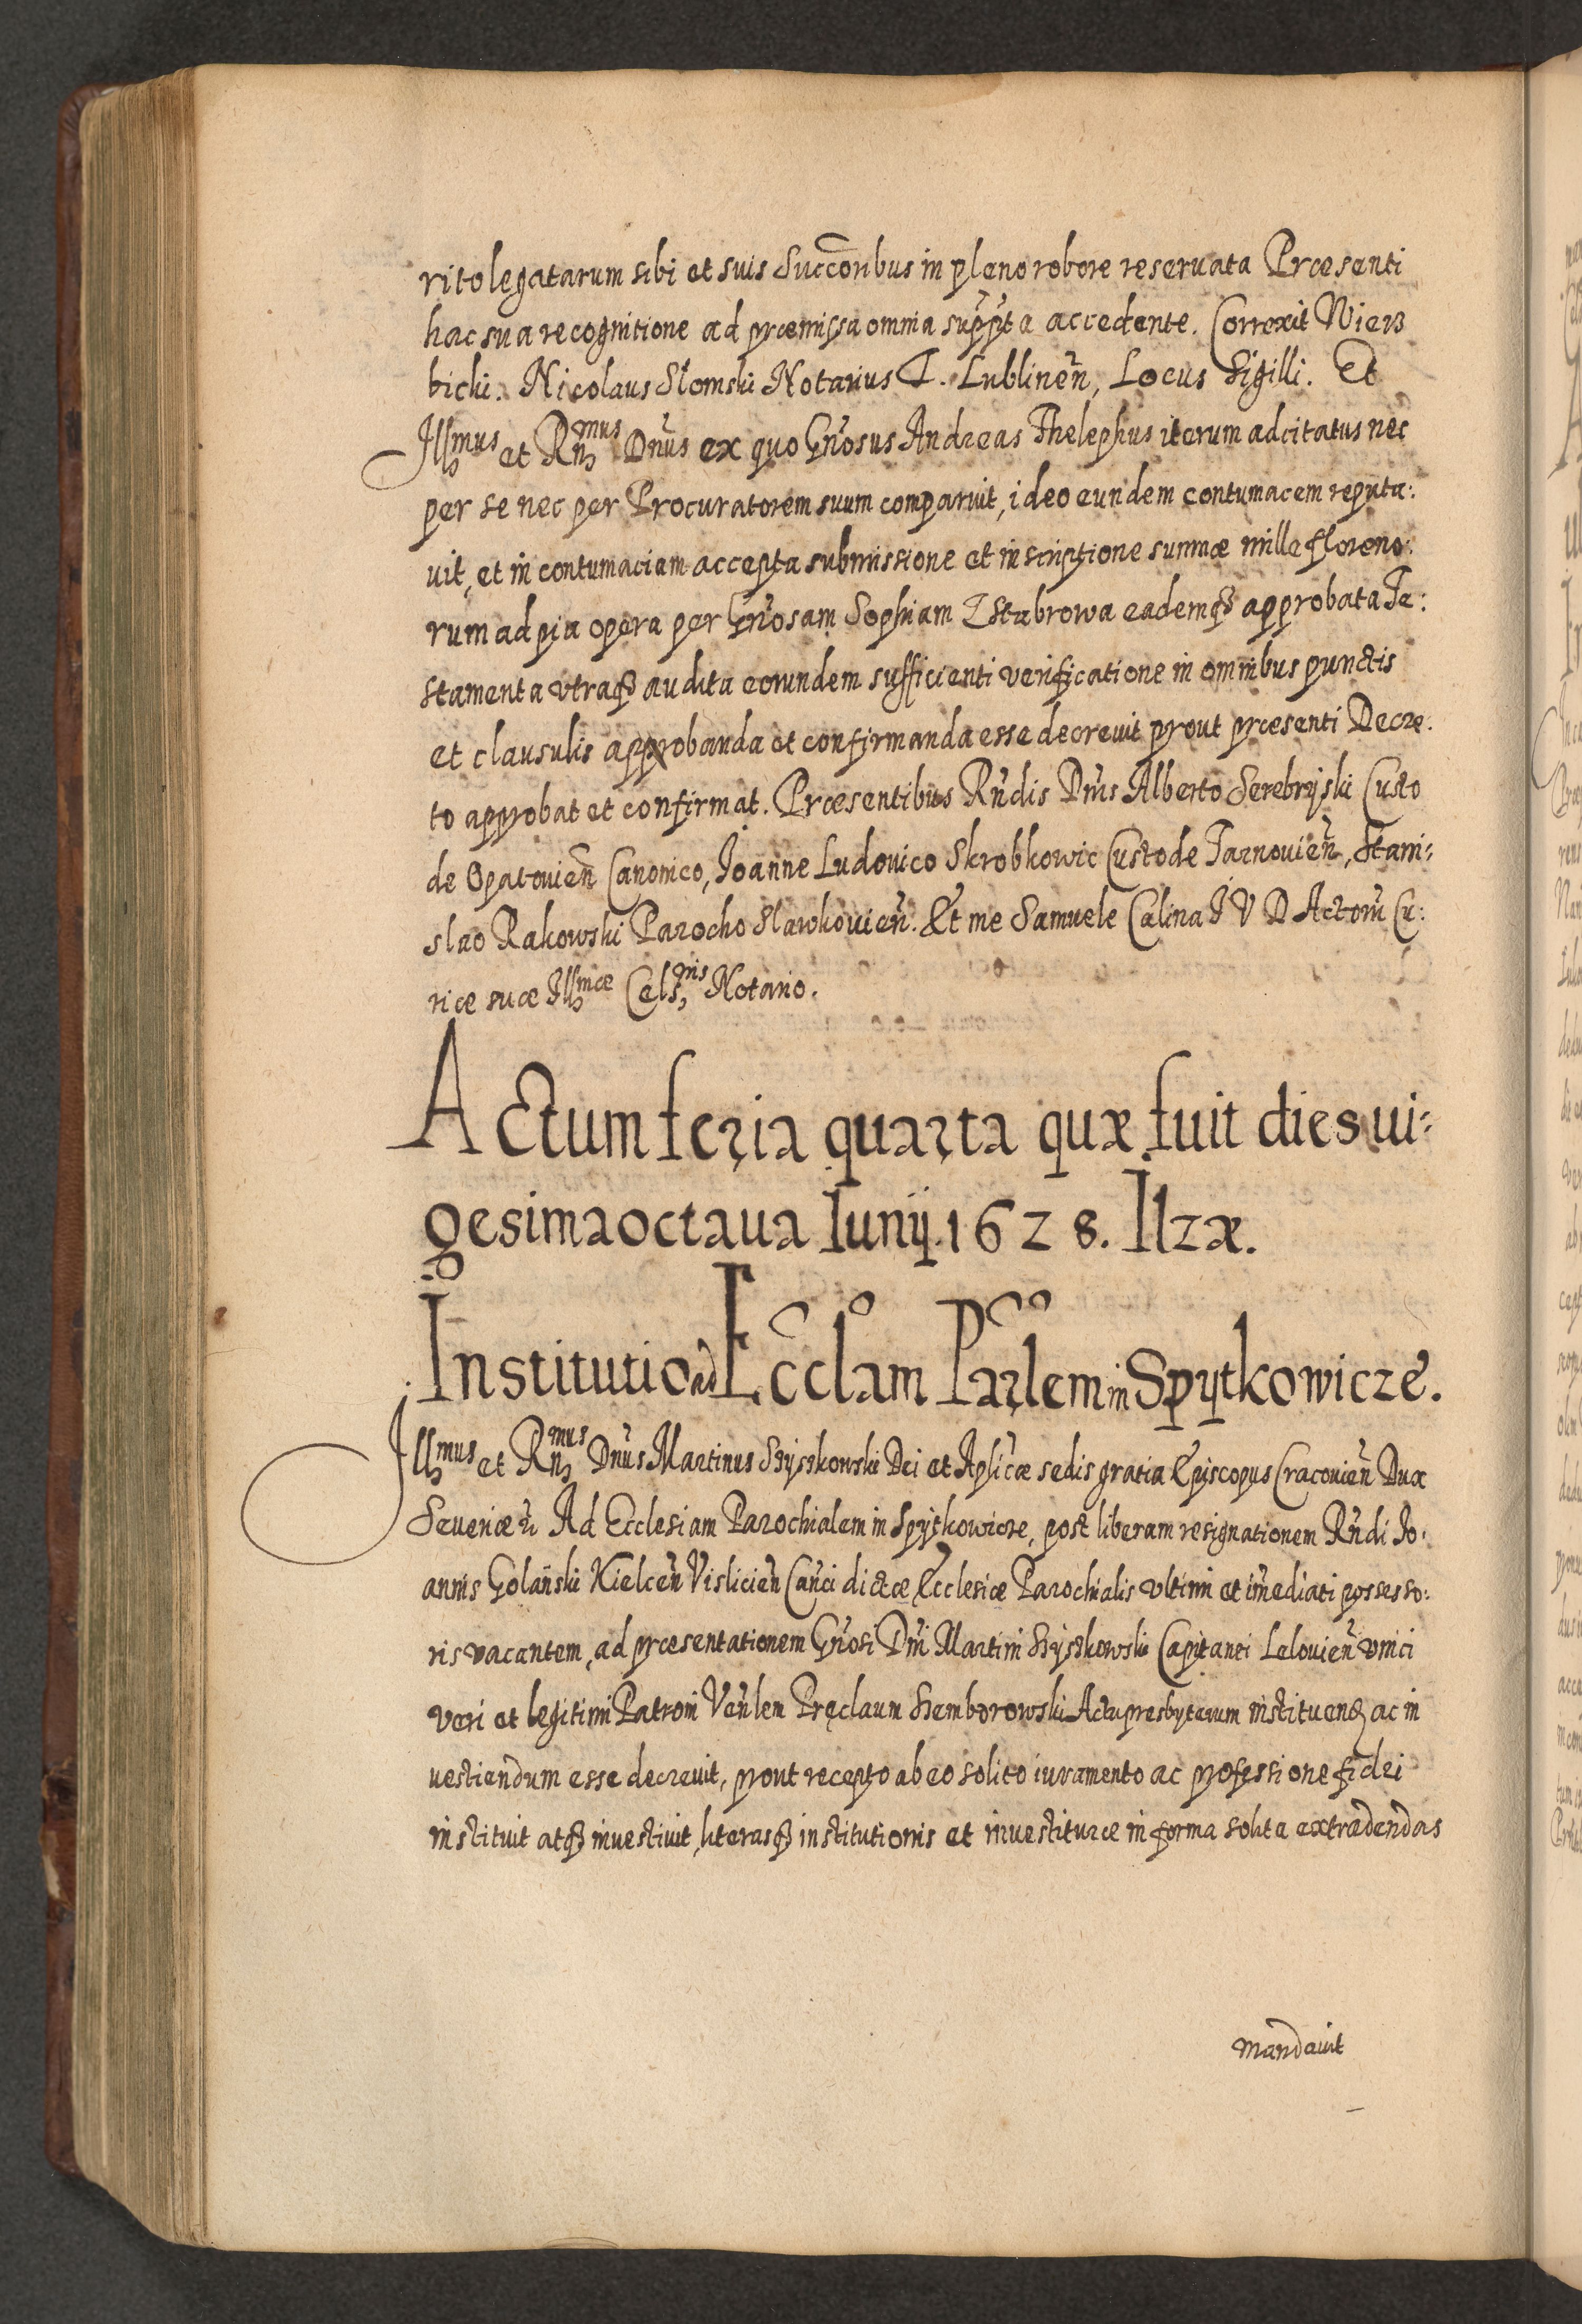 rito legatarum sibi et suis Succōribus in pleno robore reseruata Præsenti
hac sua recognitione ad præmissa omnia suppta accedente. Correxit Wierz
bicki. Nicolaus Słomski Notarius T. Lublineñ, Locus Sigilli. Et
Illmus et Rnmus Dnus ex quo Gñosus Andreas Thelephus iterum adcitatus nec
per se nec per Procuratorem suum comparuit, ideo eundem contumacem reputa:
uit, et in contumaciam accepta submissione et inscriptione summæ mille floreno:
rum ad pia opera per Gñosam Sophiam Estabrowa eademq3 approbata Te:
stamenta vtraq3 audita eorundem sufficienti verificatione in omnibus punctis
et clausulis approbanda et confirmanda esse decreuit prout præsenti Decre:
to approbat et confirmat. Præsentibus Rñdis Dñis Alberto Serebryski Custo
de Opatouieñ Canonico, Joanne Ludouico Skrobkowic Custode Tarnouieñ, Stani:
slao Rakowski Parocho Slawkouieñ. Et me Samuele Calina J V D Actorũ Cu:
riæ suæ Illmæ Cels,nis Notario.
Actum feria quarta quæ fuit dies ui:
gesima octaua Iunij. 1628. Ilzæ.
Institutio ad Ecclam Parlem in Spytkowicze.
Illmus et Rnmus Dñus Martinus Szyszkowski Dei et Aplicæ sedis gratia Episcopus Cracouieñ Dux
Seueriæñ Ad Ecclesiam Parochialem in Spytkowicze, post liberam resignationem Rñdi Jo:
annis Golański Kielceñ Vislicieñ Cañci dictæ Ecclesiæ Parochialis vltimi et im̃ediati possesso:
ris vacantem, ad præsentationem Gñosi Dñi Martini Szyszkowski Capitanei Lelouieñ vnici
veri et legitimi Patroni Veñlem Pręclaum Szemborowski Actu presbyterum instituend, ac in
uestiendum esse decreuit, prout recepto ab eo solito iuramento ac professione fidei
instituit atq3 inuestiuit, literasq3 institutionis et inuestituræ in forma solita extradendas
mandauit